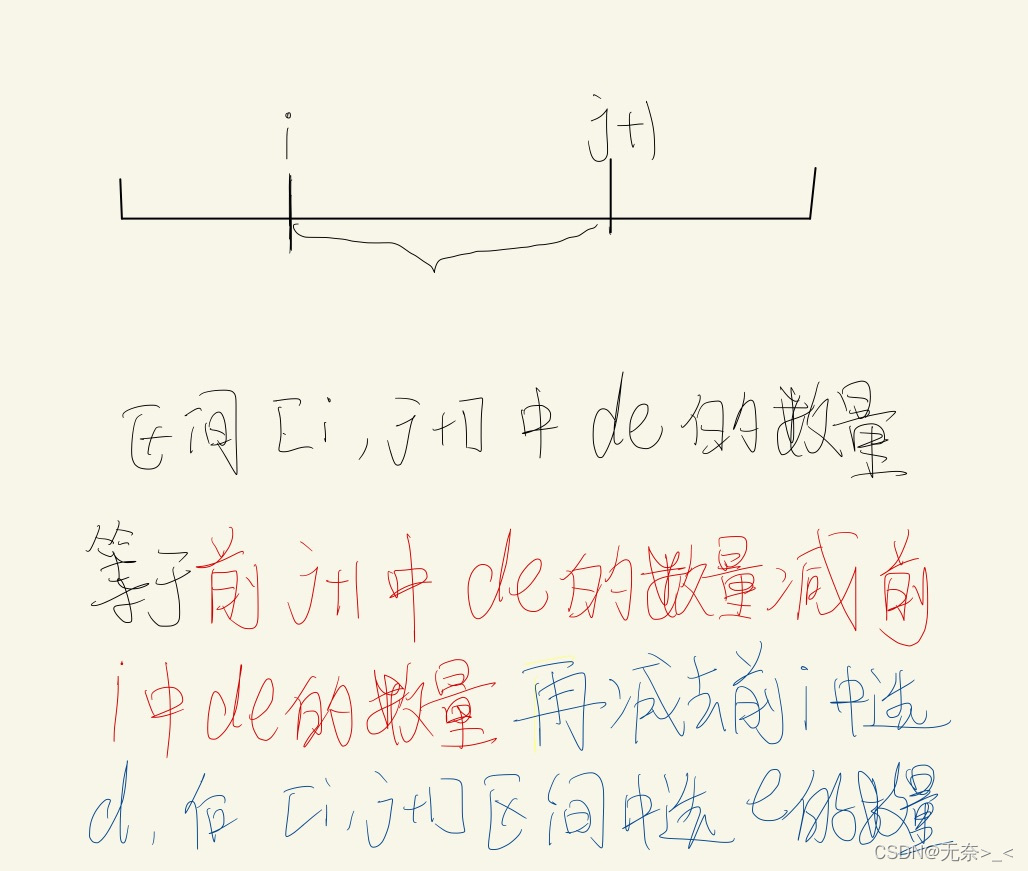 i
j+1
区间 [i,j+1] 中 de 的数量
等于前 j+1 中 de 的数量减前
i 中 de 的数量 再减去前 i 中选
d,在 [i,j+1] 区间中选 e 的数量
CSDN@无奈>_<